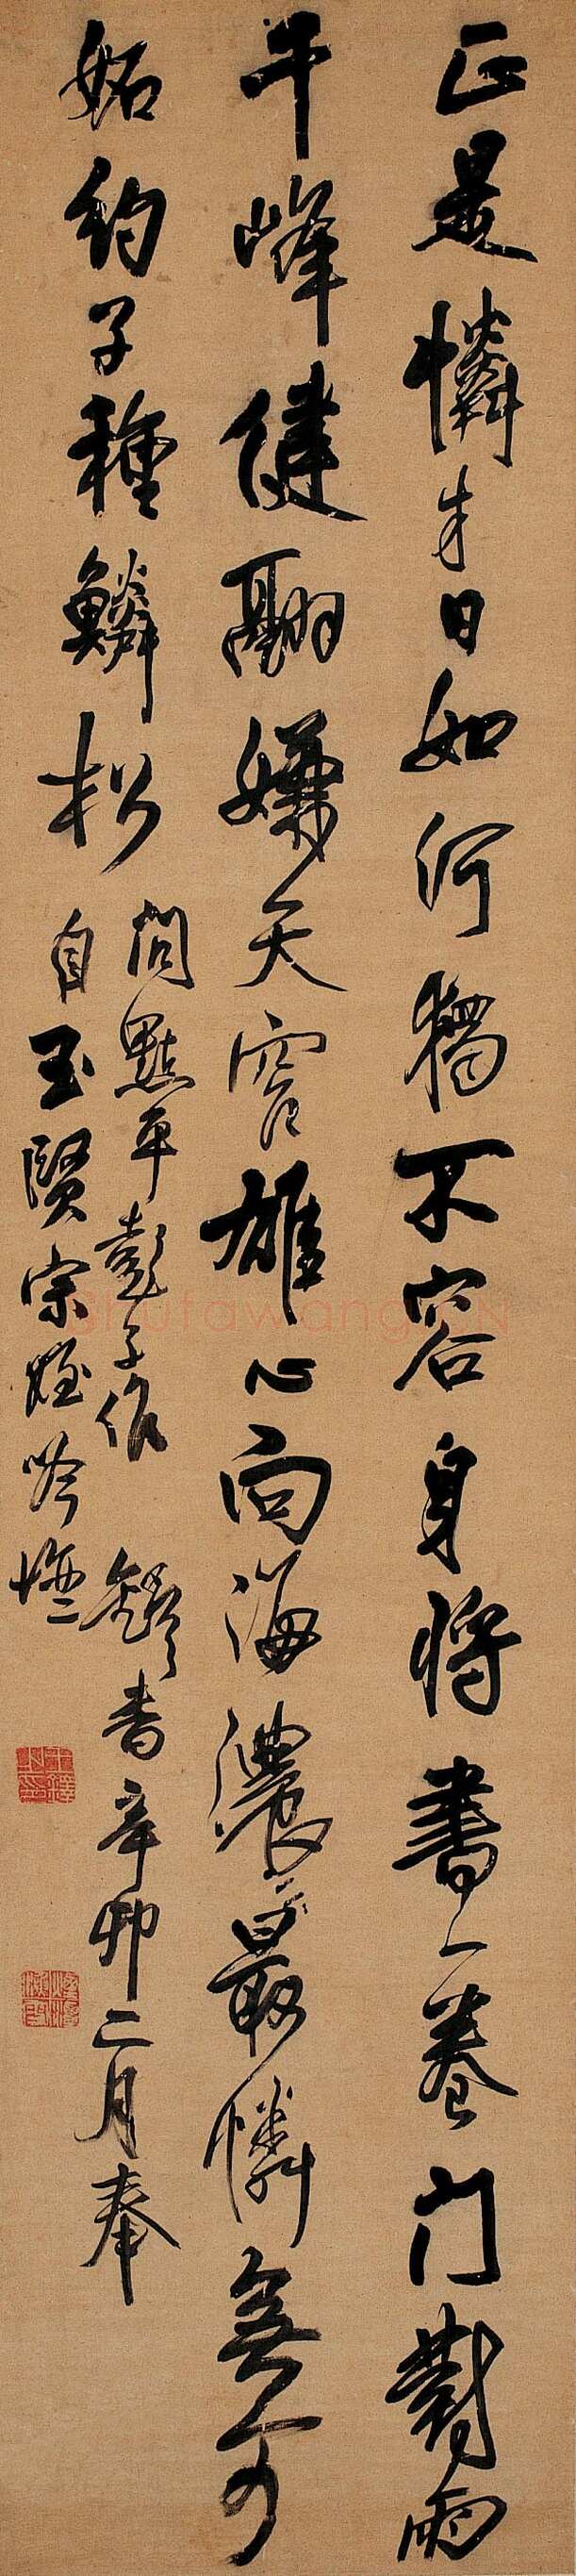 正是憐才日如何獨不容身將書一卷門對雨
千峰健翮嫌天窄雄心向海濃最憐無可
妬約子種鱗松
問點平彭子作 鐸書辛卯二月奉
自玉賢宗姪吟壇
Shufawang.CN